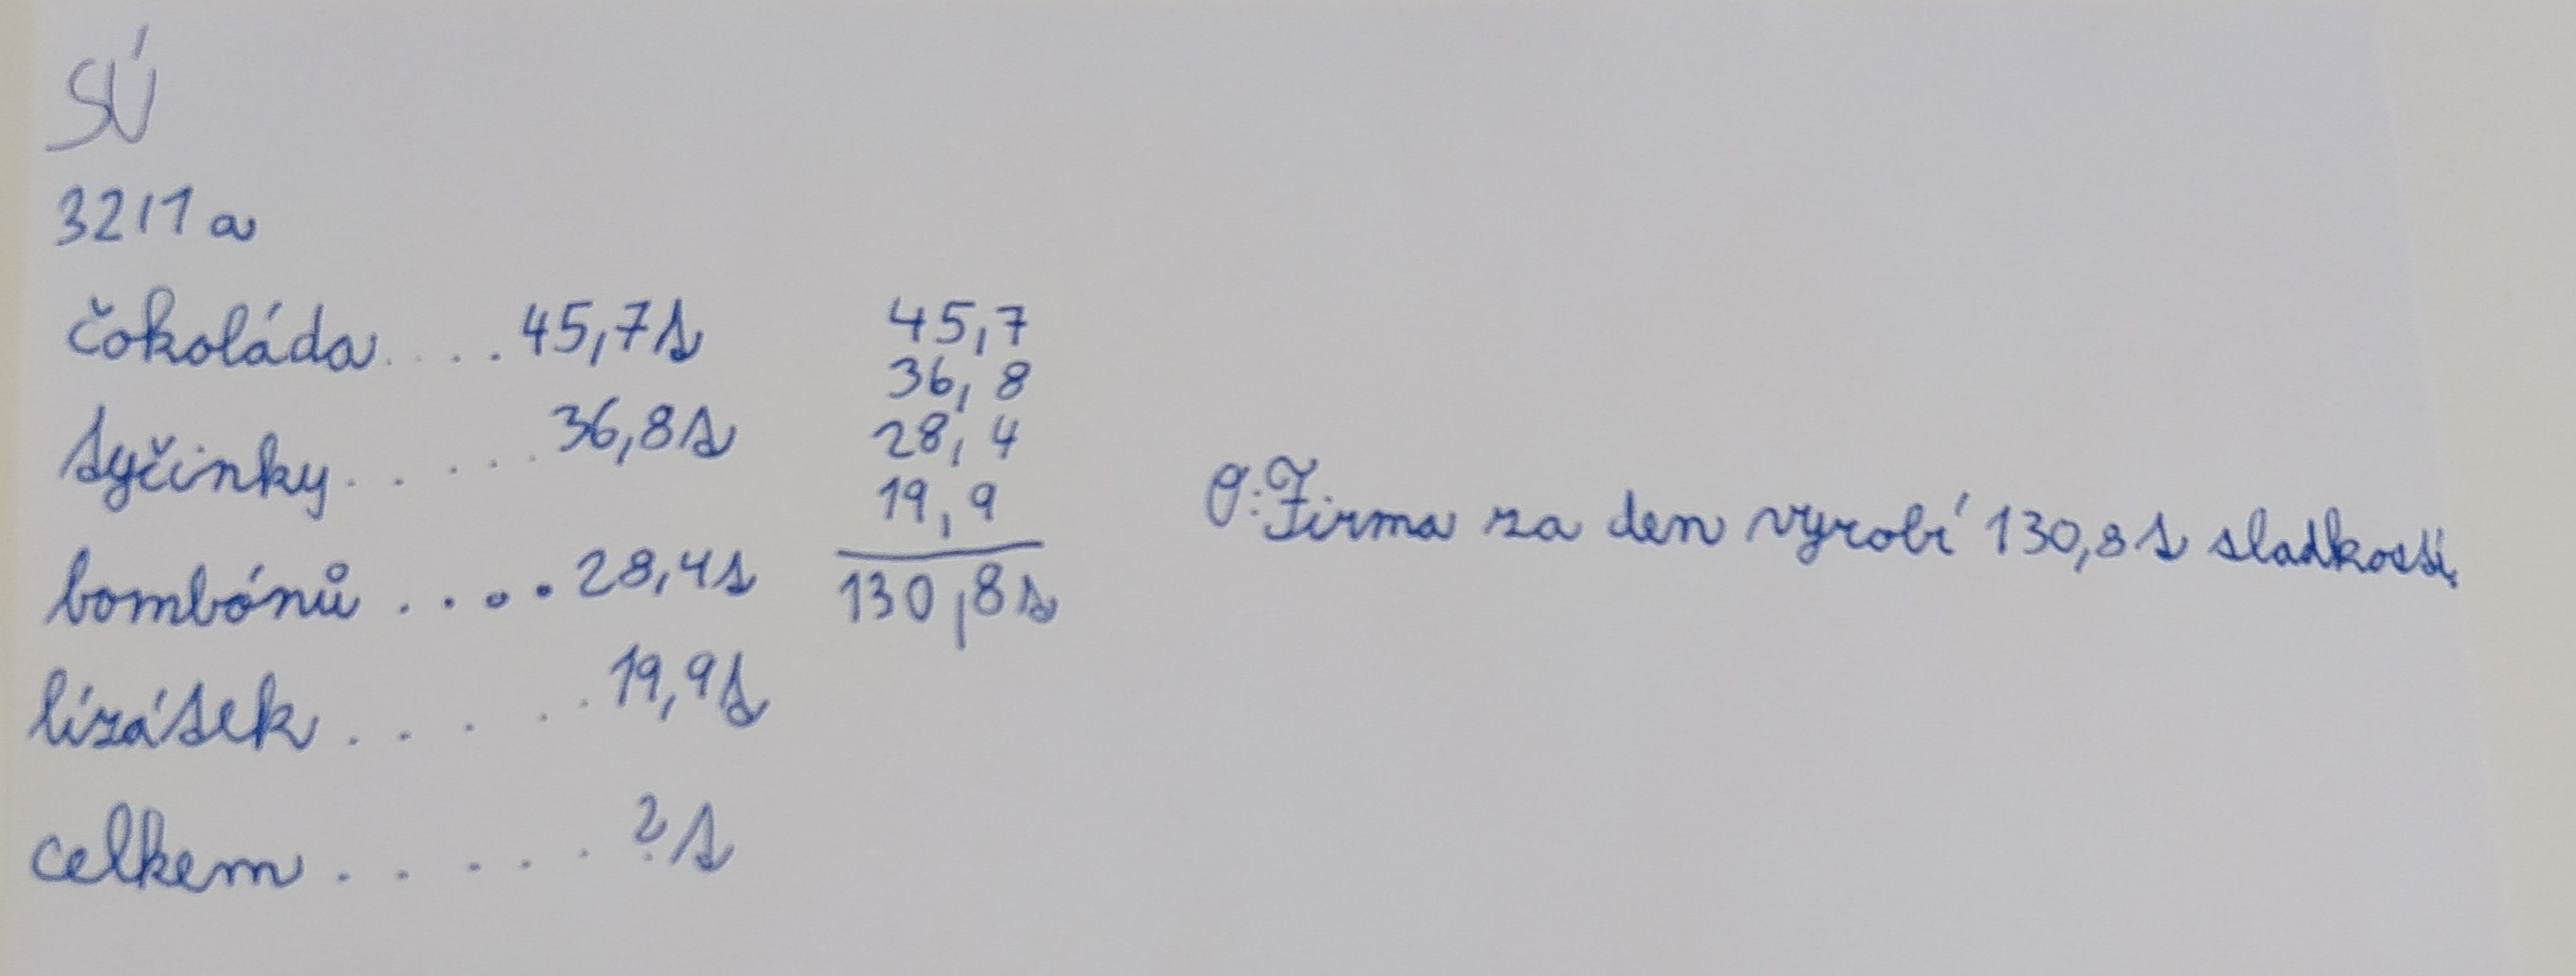 SÚ
32/1 a
čokoláda....45,7t
tyčinky......36,8t
bombónů....28,4t
lízátek.....19,9t
celkem.....?t
45,7
36,8
28,4
19,9
130,8t
O: Firma za den vyrobí 130,8t sladkostí.